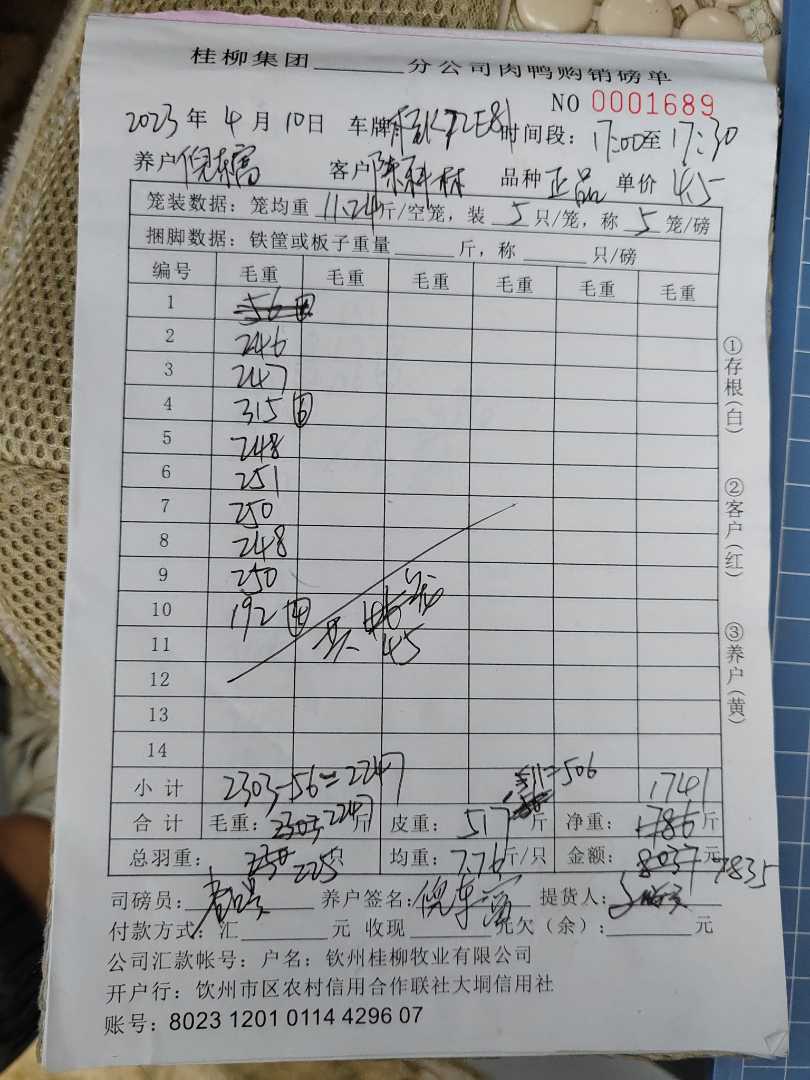 桂柳集团______分公司肉鸭购销磅单
NO 0001689
2023年 4月 10日 车牌 时间段: 17:00至17:30
养户 倪东富 客户 陈科林 品种 正品 单价 4.5
笼装数据: 笼均重 11.24斤/空笼, 装 5 只/笼, 称 5 笼/磅
捆脚数据: 铁筐或板子重量______斤, 称______只/磅
编号 毛重 毛重 毛重 毛重 毛重 毛重
1 56
2 246
3 247
4 315 6
5 248
6 251
7 250
8 248
9 250
10 192 4
共 46 笼
11 45
12
13
14
小计 2303-56=2247 506 1741
合计 毛重: 2303 2247斤 皮重: 517斤 净重: 1786斤
总羽重: 230 225只 均重: 7.76斤/只 金额: 8037元 7835
司磅员: 养户签名: 倪东富 提货人:
付款方式: 汇______元 收现______元欠(余):______元
公司汇款帐号: 户名: 钦州桂柳牧业有限公司
开户行: 钦州市区农村信用合作联社大垌信用社
账号: 8023 1201 0114 4296 07
①存根(白)
②客户(红)
③养户(黄)